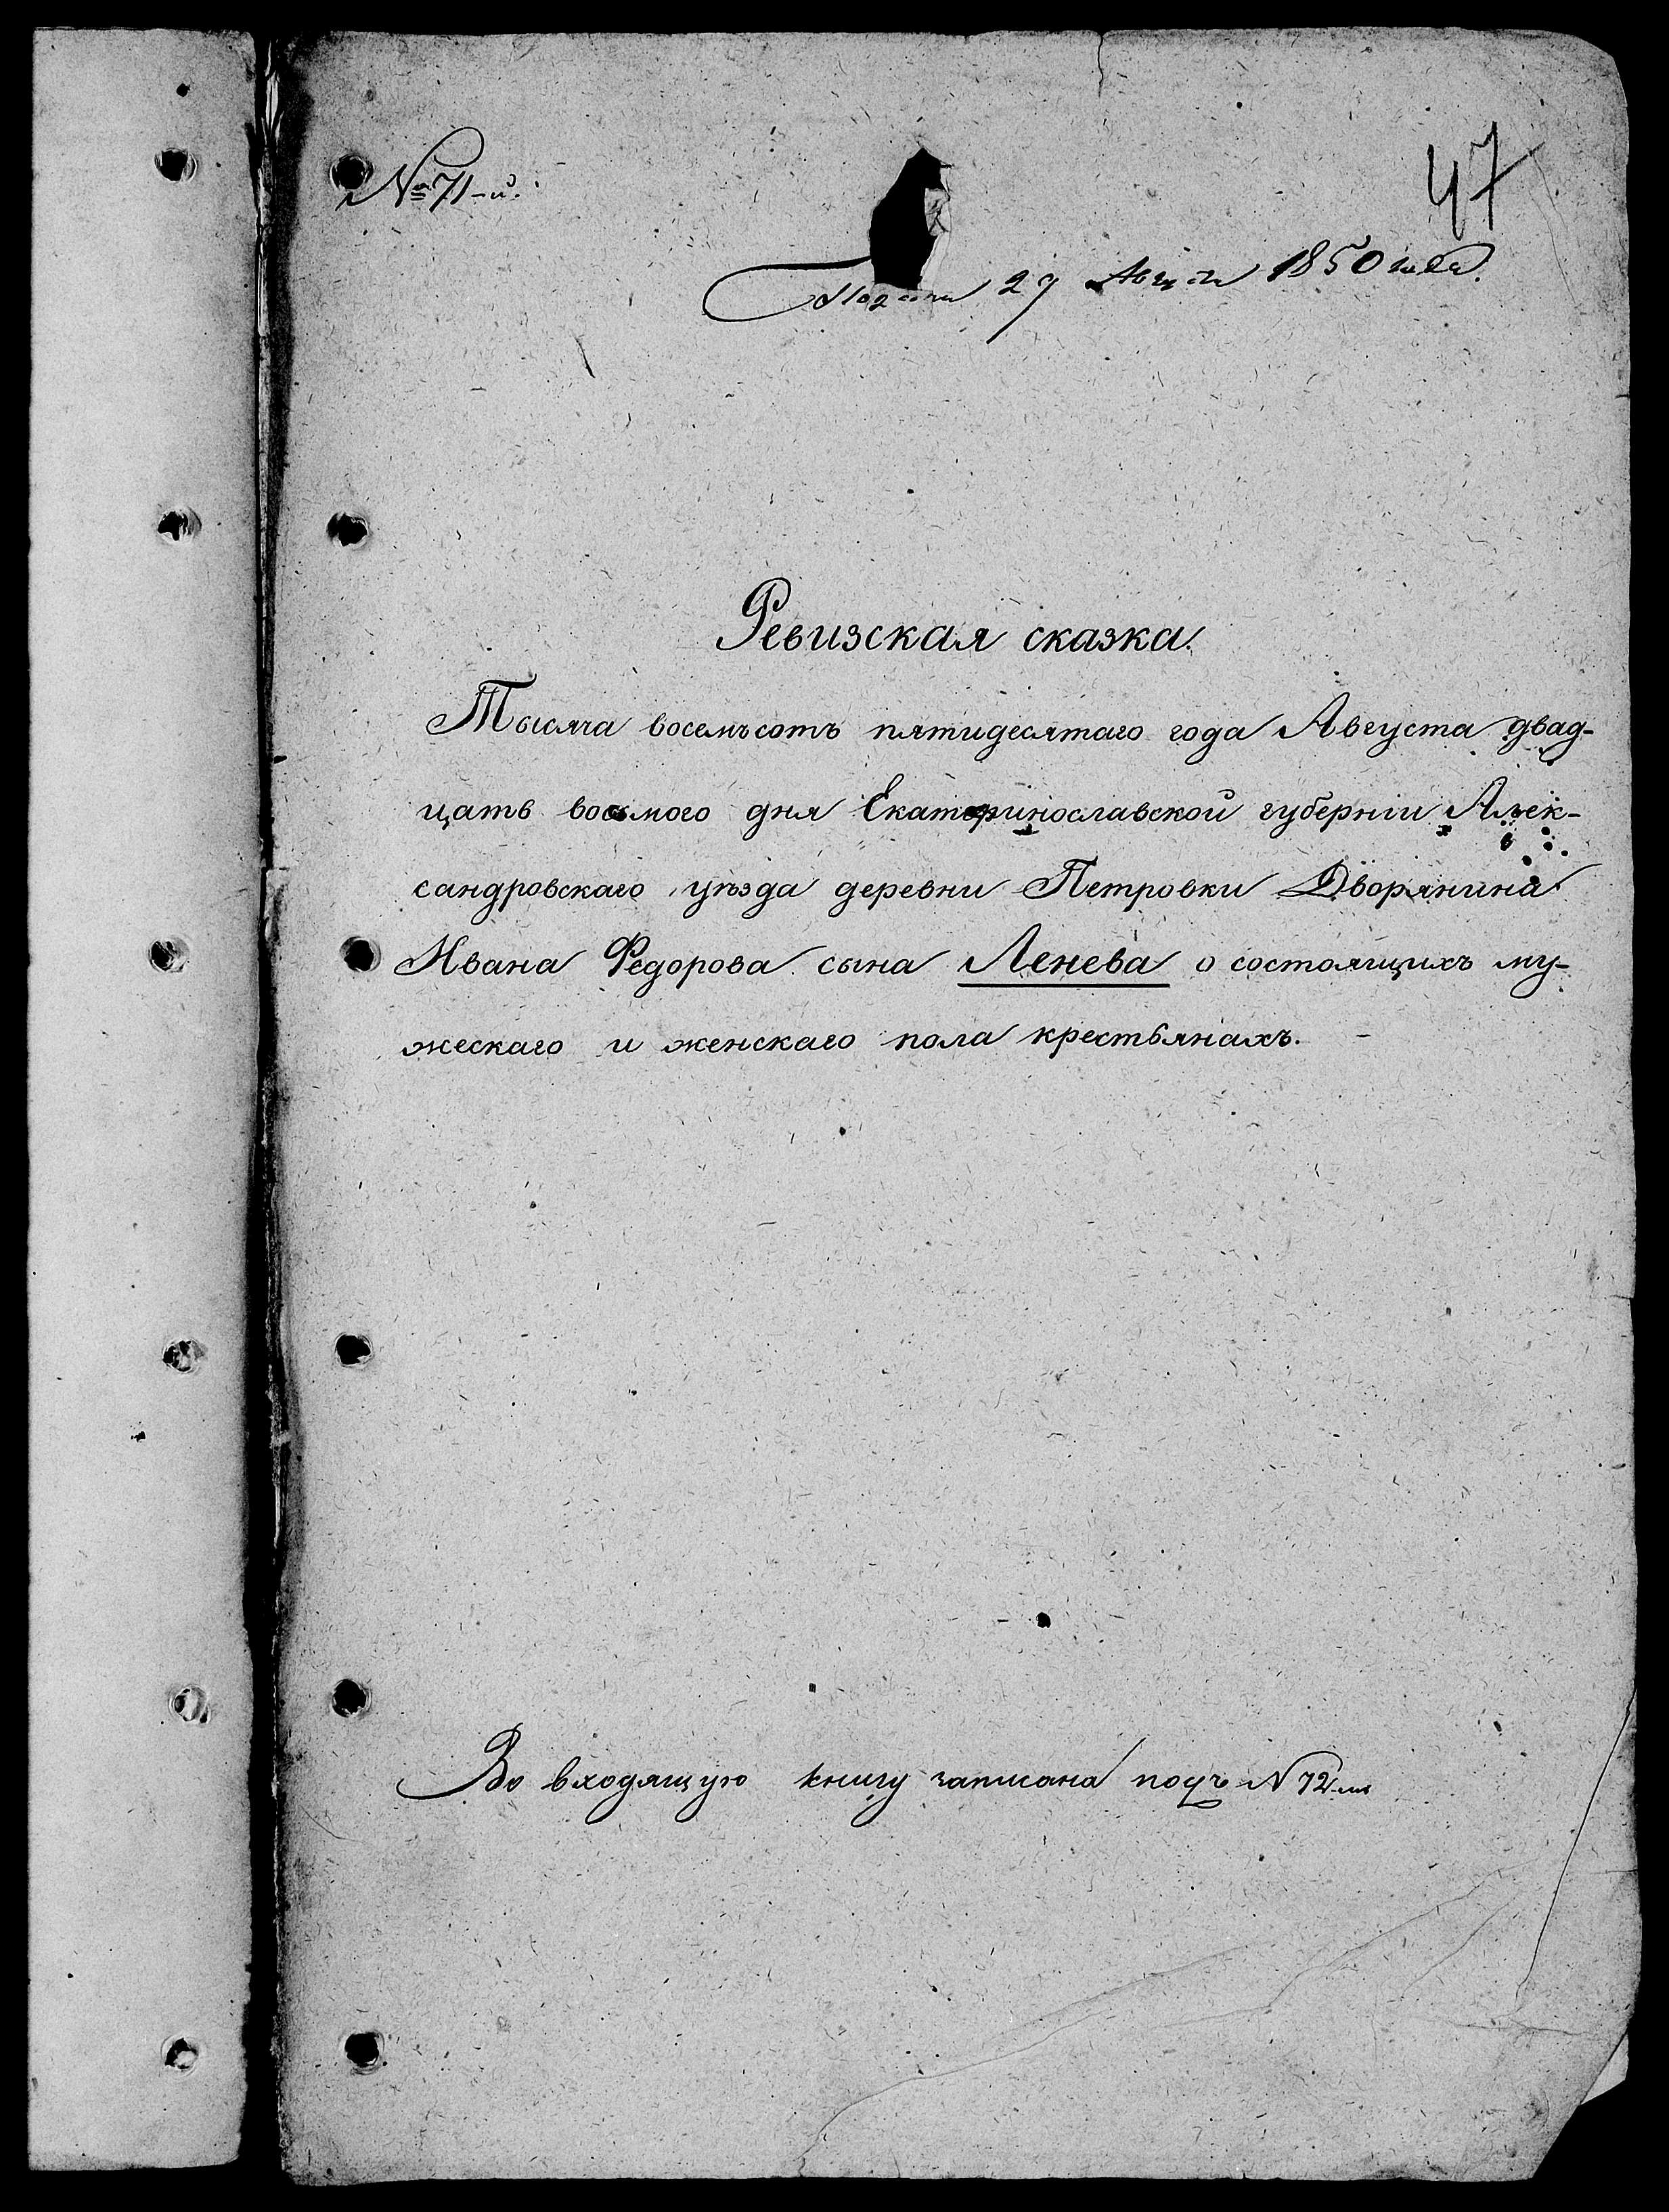 № 71-й.
47
Подана 29 Августа 1850 года.
Ревизская сказка.
Тысяча восемьсотъ пятидесятаго года Августа двад-
цать восьмого дня Екатеринославской губерніи Алек-
сандровскаго уѣзда деревни Петровки Дворянина
Ивана Федорова сына Ленева о состоящихъ му-
жескаго и женскаго пола крестьянахъ. —
Во входящую книгу записана подъ N 72-мъ